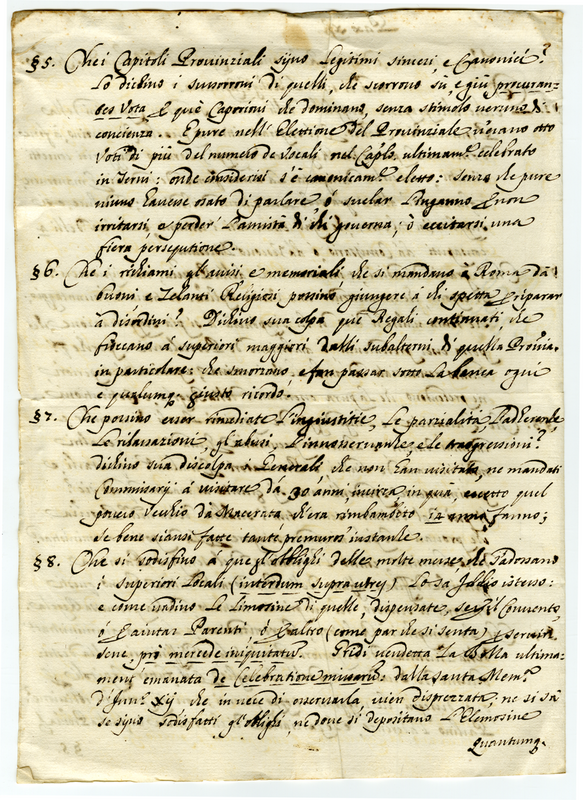 § 5. Che i Capitoli Provinziali sijno Legitimi sinceri, e Canonici?
Lo dichino i sussorroni di quelli, che scorrono sù, e giù procuran-
do Vota que Caporioni che dominano, senza stimolo veruno di
concienza. Epure nell' Elettione del Provinziale v'erano otto
Voti di più del numero de Vocali nel Caplo ultimamte celebrato
in Terni: onde considerisi s'è canonicamte eletto: senza che pure
niuno havesse osato di parlare ò svelar l'inganno non
irritarsi, e perder l'amistà di chi governa, ò eccitarsi una
fiera persequtione.
§ 6. Che i richiami gl'avisi e memoriali che si mandano à Roma dà
buoni e Zelanti Religiosi possino giungere à chi spetta riparar
à disordini? Dichino sua colpa que Regali continuati, che
fioccano à superiori maggiori dalli subalterni di quella Provia
in particolare: che smorzano e fan passar sotto La banca ogni
e qualumq giusto ricordo.
§ 7. Che possino esser rimediate l'ingiustitie, Le parzialità, l'adherenze,
Le rilassazioni, gl'abusi, l'innosservanze e le trasgressioni?
dichino sua discolpa i Generali che non l'an visitata, ne mandati
Commisarij à visitare dà 30 anni incirca in quà, eccetto quel
povero Vecchio da Macerata ch'era rimbambito 14 anni fanno;
se bene siansi fatte tante premuros' instanze.
§ 8. Che si sodisfino à que gl'oblighi delle molte messe, che s'adossano
i superiori Locali (interdum supra vires) Lo sa Iddio istesso:
e come vadino Le limosine di quelle, dispensate, se il Convento,
ò aiutar Parenti ò altro (come par che si senta) servirsi-
sene prò mercede iniquitatis. Gridi vendetta La Bolla ultima-
mente emanata de Celebratione missarum dalla santa Mema
d'Innoc. xij che in vece di osservarla vien disprezzata, ne si sà
se sijno sodisfatti gl'oblighi, ne dove si depositano l'Elemosine
Quantunq.